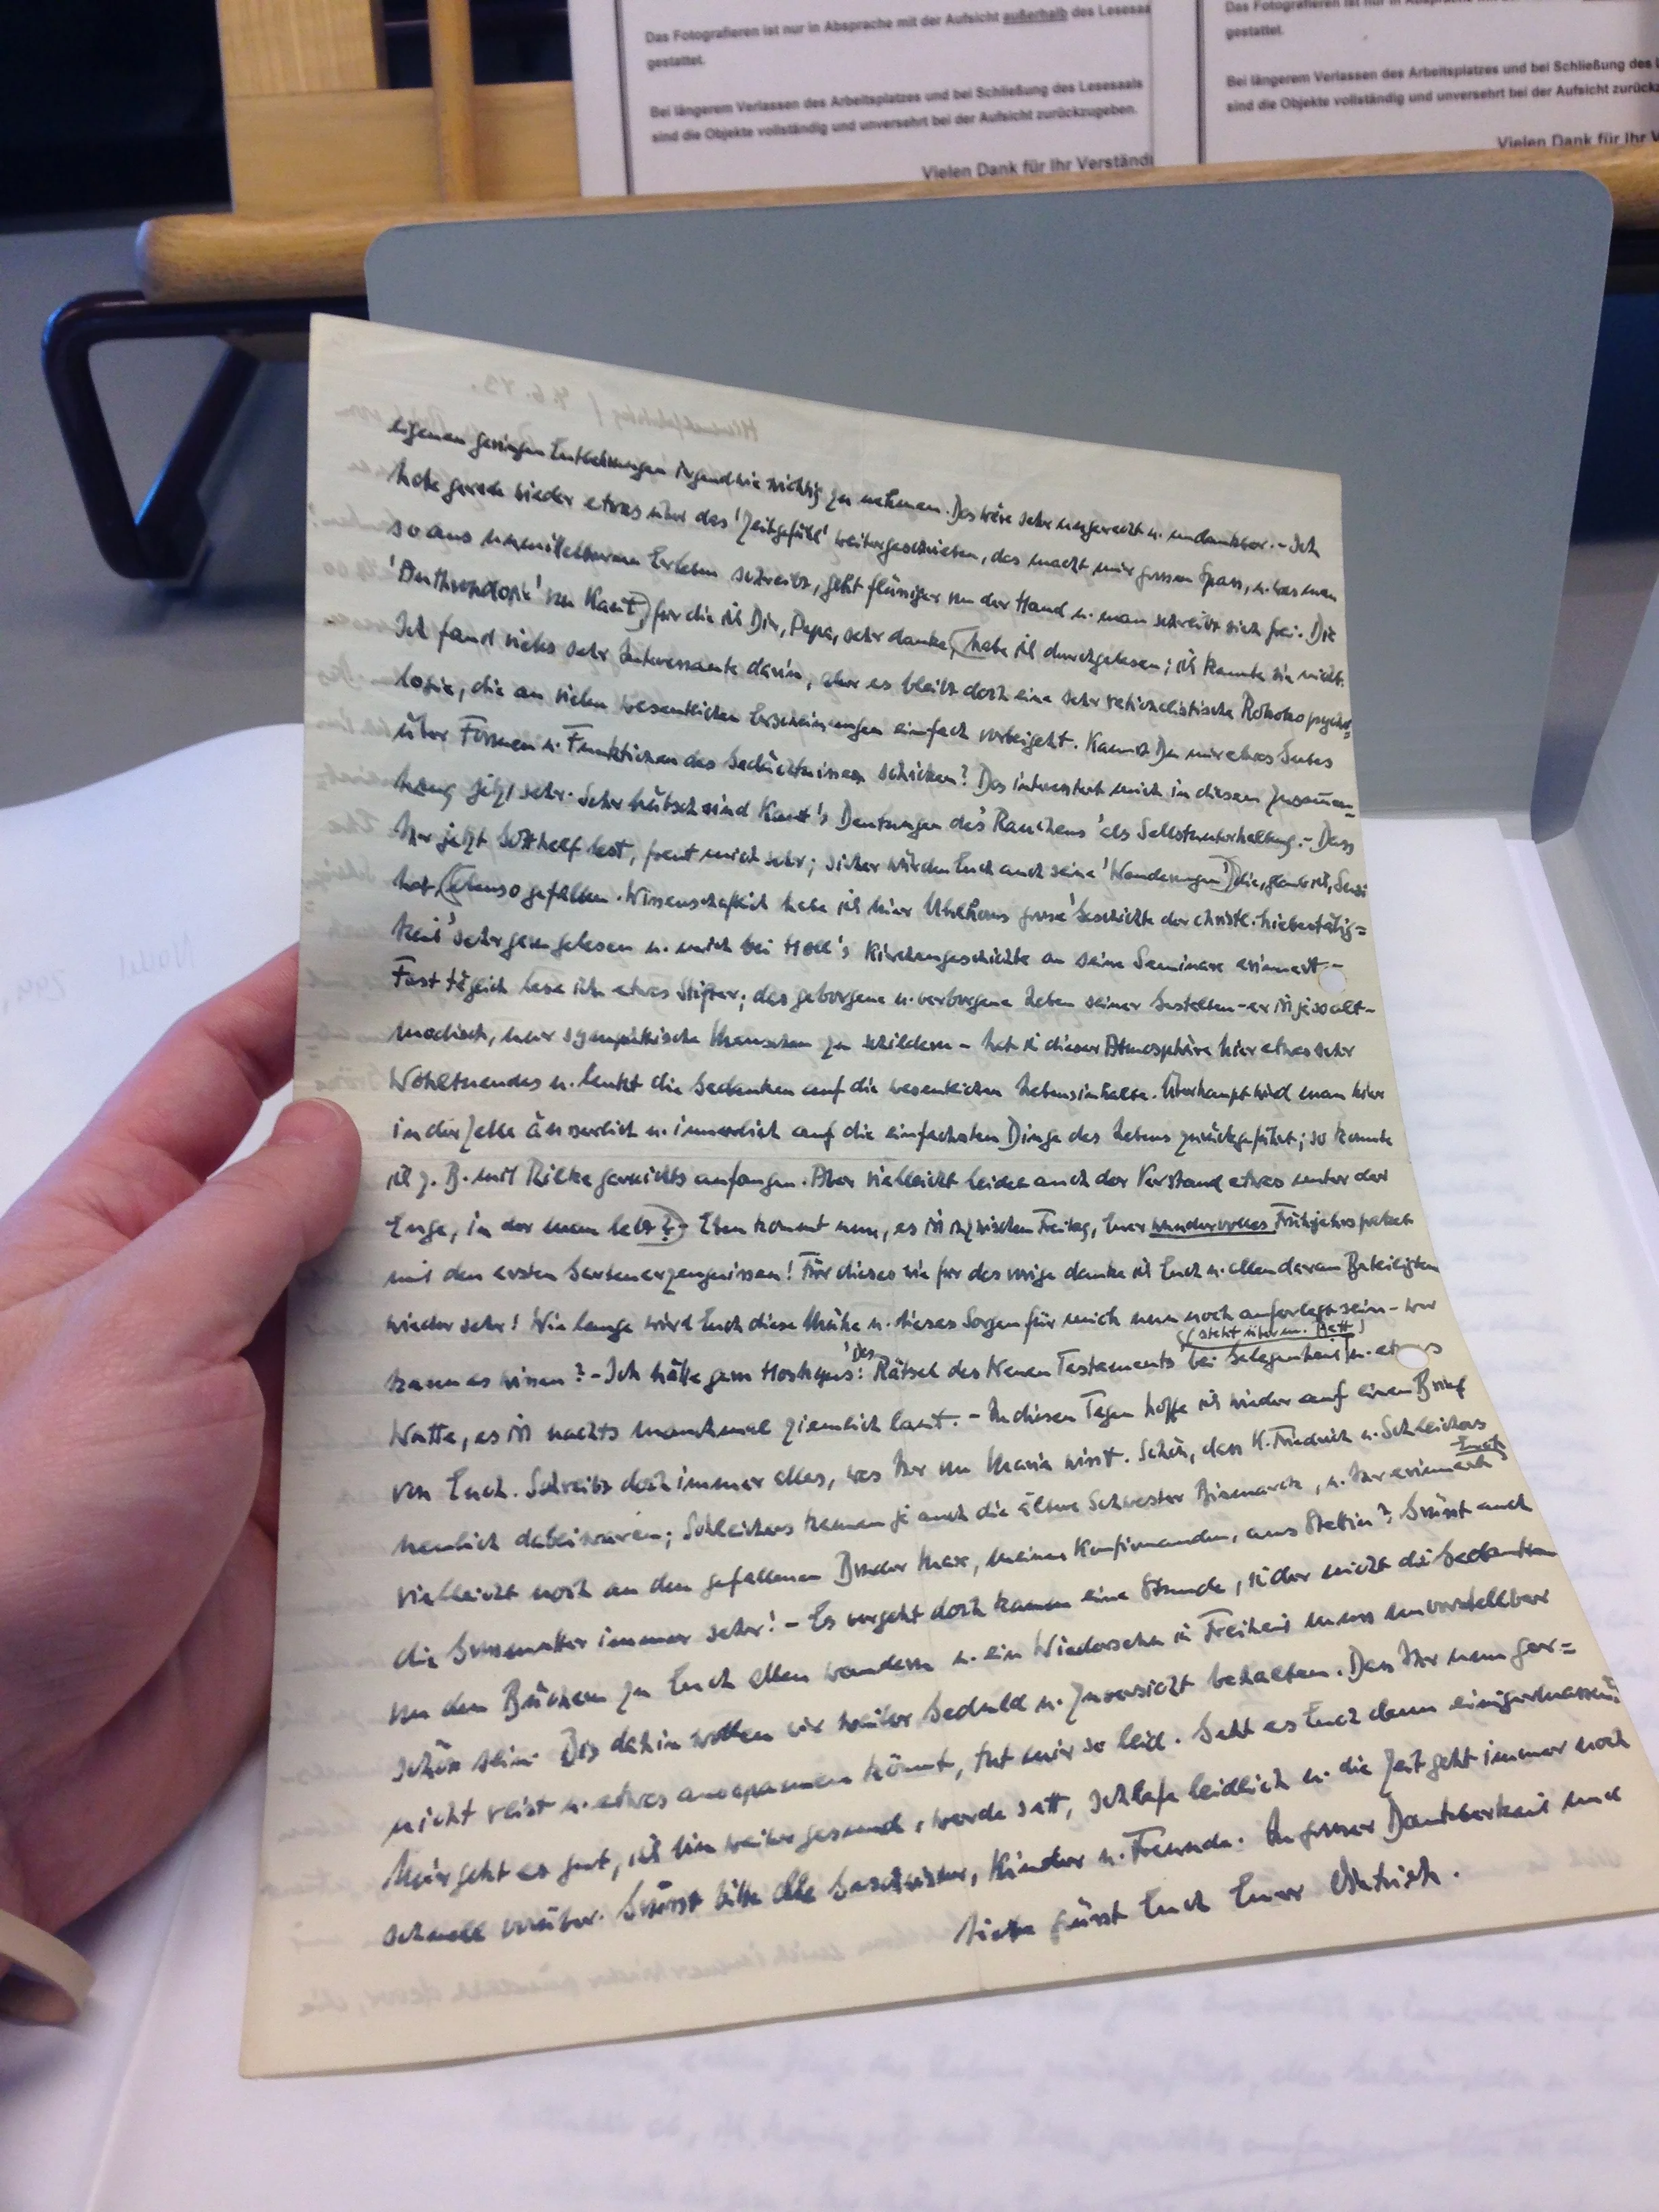 Das Fotografieren ist nur in Absprache mit der Aufsicht außerhalb des Lesesaa
gestattet.
Bei längerem Verlassen des Arbeitsplatzes und bei Schließung des Lesesaals
sind die Objekte vollständig und unversehrt bei der Aufsicht zurückzugeben.
Vielen Dank für Ihr Verständ
Das Fotografieren ist nur in Absprache mit der
gestattet.
Bei längerem Verlassen des Arbeitsplatzes und bei Schließung des L
sind die Objekte vollständig und unversehrt bei der Aufsicht zurückz
Vielen Dank für Ihr V
Himmelfahrtstag / 4.6.43.
eigenen geringen Entbehrungen irgendwie wichtig zu nehmen. Das wäre sehr ungerecht u. undankbar. - Ich
habe gerade wieder etwas über das 'Zeitgefühl' weitergeschrieben, das macht mir grossen Spass, u. was man
so aus unmittelbarem Erleben schreibt, geht flüssiger von der Hand u. man schreibt sich frei. Die
'Anthropologie' von Kant) für die ich Dir, Papa, sehr danke, (habe ich durchgelesen; ich kannte sie nicht.
Ich fand vieles sehr Interessante darin, aber es bleibt doch eine sehr rationalistische Rokokopsycho=
logie, die an vielen wesentlichen Erscheinungen einfach vorbeigeht. Kannst Du mir etwas Gutes
über Formen u. Funktionen des Gedächtnisses schicken? Das interessiert mich in diesem Zusammen=
hang jetzt sehr. Sehr hübsch sind Kant's Deutungen des 'Rauchens' als Selbstunterhaltung. - Dass
Ihr jetzt Gotthelf lest, freut mich sehr; sicher würden Euch auch seine 'Wanderungen') die, glaub ich, Susi
hat, (ebenso gefallen. Wissenschaftlich habe ich hier Uhlhorns grosse 'Geschichte der christl. Liebestätig=
keit' sehr gern gelesen u. mich bei Holl's Kirchengeschichte an seine Seminare erinnert. -
Fast täglich lese ich etwas Stifter; das geborgene u. verborgene Leben seiner Gestalten - er ist ja so alt-
modisch, nur sympathische Menschen zu schildern - hat in dieser Atmosphäre hier etwas sehr
Wohltuendes u. lenkt die Gedanken auf die wesentlichen Lebensinhalte. Überhaupt wird man hier
in der Zelle äusserlich u. innerlich auf die einfachsten Dinge des Lebens zurückgeführt; so konnte
ich z. B. mit Rilke garnichts anfangen. Aber vielleicht leidet auch der Verstand etwas unter der
Enge, in der man lebt? - Eben kommt nun, es ist inzwischen Freitag, Euer wundervolles Frühjahrspaket
mit den ersten Gartenerzeugnissen! Für dieses wie für das vorige danke ich Euch u. allen daran Beteiligten
wieder sehr! Wie lange wird Euch diese Mühe u. dieses Sorgen für mich nun noch auferlegt sein - wer
kann es wissen? - Ich hätte gern Hoskyns: 'Das Rätsel des Neuen Testaments' bei Gelegenheit (steht über m. Bett) u. etwas
Watte, es ist nachts manchmal ziemlich laut. - In diesen Tagen hoffe ich wieder auf einen Brief
von Euch. Schreibt doch immer alles, was Ihr von Maria wisst. Schön, dass K. Friedrich u. Schleichers
neulich dabei waren; Schleichers kennen ja auch die ältere Schwester Bismarck, u. Ihr erinnert Euch
vielleicht noch an den gefallenen Bruder Max, meinen Konfirmanden, aus Stettin? Grüsst auch
die Grossmutter immer sehr! - Es vergeht doch kaum eine Stunde, in der nicht die Gedanken
von den Büchern zu Euch allen wandern u. ein Wiedersehen in Freiheit muss unvorstellbar
schön sein. Bis dahin wollen wir weiter Geduld u. Zuversicht behalten. Dass Ihr nun gar=
nicht reist u. etwas ausspannen könnt, tut mir so leid. Geht es Euch denn einigermassen?
Mir geht es gut, ich bin weiter gesund, werde satt, schlafe leidlich u. die Zeit geht immer noch
schnell vorüber. Grüsst bitte alle Geschwister, Kinder u. Freunde. In grosser Dankbarkeit und
Liebe grüsst Euch Euer Dietrich.